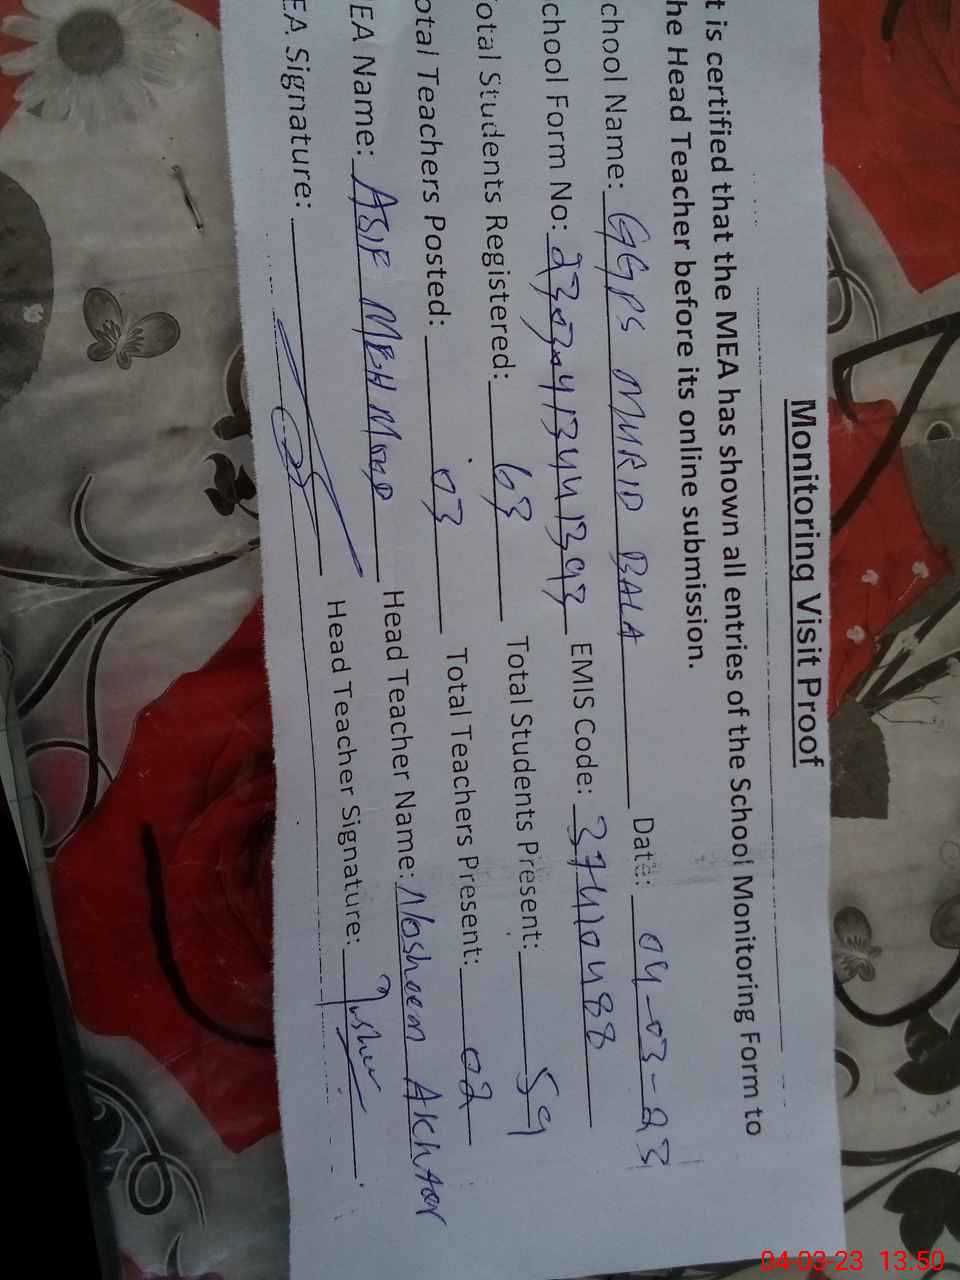 Monitoring Visit Proof
t is certified that the MEA has shown all entries of the School Monitoring Form to
he Head Teacher before its online submission.
chool Name: GGPS MURID BALA Date: 04-03-23
chool Form No: EMIS Code: 37410488
otal Students Registered: 63 Total Students Present: 59
otal Teachers Posted: 03 Total Teachers Present: 02
EA Name: ASIF MEHMOOD Head Teacher Name: Nosheen Akhtar
EA Signature: Head Teacher Signature:
04-03-23 13:50